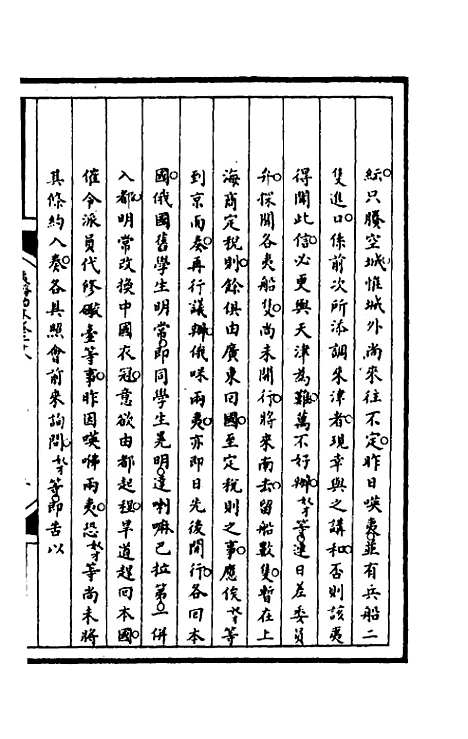 綜只賸空城惟城外尚來往不定昨日㗎夷並有兵船二
隻進口係前次所添調來津者現幸與之講和否則該夷
得聞此信必更與天津為難萬不好辦奴才等連日差委員
升探聞各夷船隻尚未開行將來南去留船數隻暫在上
海商定稅則餘俱由廣東回國至定稅則之事應俟奴才等
到京面奏再行議辦俄咪兩夷亦即日先後開行各回本
國俄國舊學生明常即同學生晃明達喇嘛巴拉第一併
入都明常改換中國衣冠意欲由都起程旱道趕回本國
催令派員代修礮臺等事昨因㗎咈兩夷恐奴才等尚未將
其條約入奏各具照會前來詢問奴才等即告以